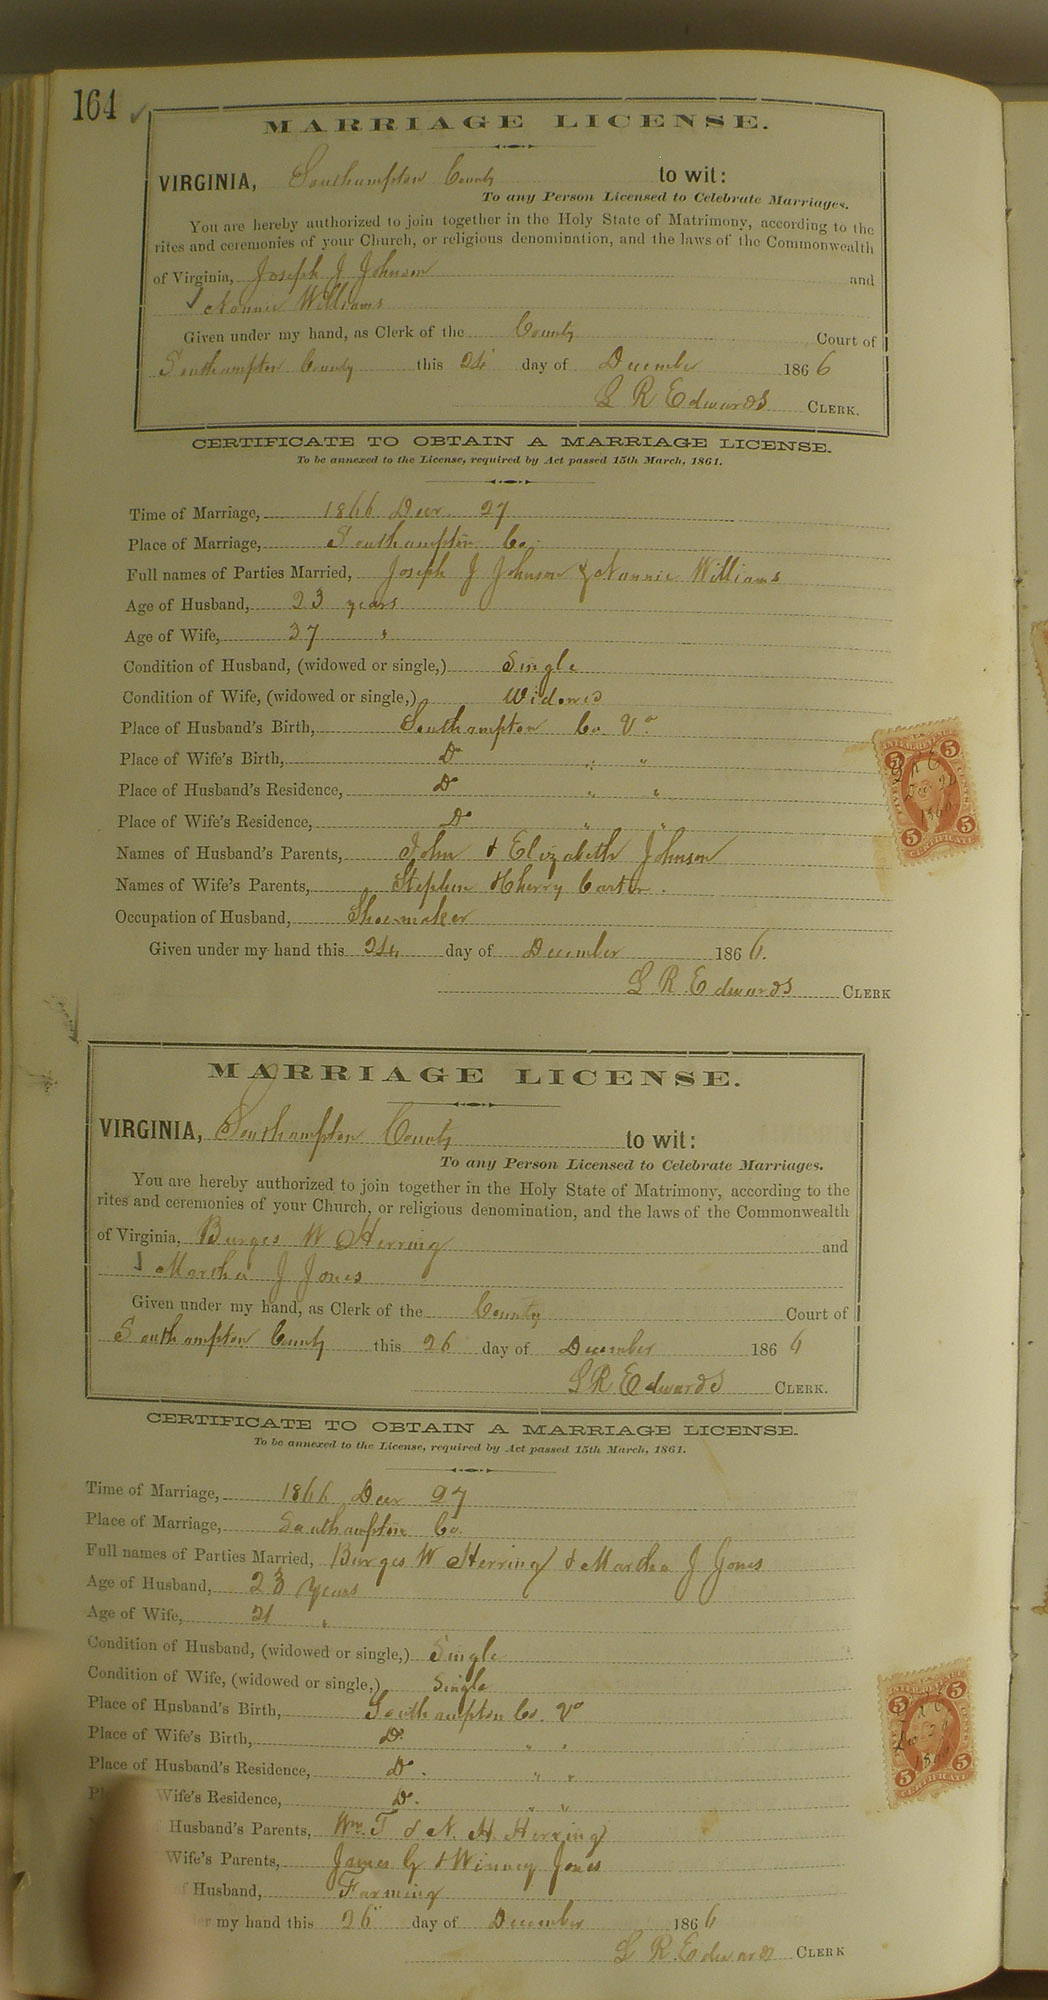 164
MARRIAGE LICENSE.
VIRGINIA, Southampton County to wit:
To any Person Licensed to Celebrate Marriages.
You are hereby authorized to join together in the Holy State of Matrimony, according to the
rites and ceremonies of your Church, or religious denomination, and the laws of the Commonwealth
of Virginia, Joseph J Johnson and
Nannie Williams
Given under my hand, as Clerk of the County Court of
Southampton County this 24 day of December 1866
L R Edwards CLERK.
CERTIFICATE TO OBTAIN A MARRIAGE LICENSE.
To be annexed to the License, required by Act passed 15th March, 1861.
Time of Marriage, 1866 Decr. 27
Place of Marriage, Southampton Co.
Full names of Parties Married, Joseph J Johnson & Nannie Williams
Age of Husband, 23 years
Age of Wife, 37 "
Condition of Husband, (widowed or single,) Single
Condition of Wife, (widowed or single,) Widowed
Place of Husband's Birth, Southampton Co. Va
Place of Wife's Birth, Do " "
Place of Husband's Residence, Do " "
Place of Wife's Residence, Do " "
Names of Husband's Parents, John & Elizabeth Johnson
Names of Wife's Parents, Stephen & Cherry Carter.
Occupation of Husband, Shoemaker
Given under my hand this 24 day of December 1866.
L R Edwards CLERK
MARRIAGE LICENSE.
VIRGINIA, Southampton County to wit:
To any Person Licensed to Celebrate Marriages.
You are hereby authorized to join together in the Holy State of Matrimony, according to the
rites and ceremonies of your Church, or religious denomination, and the laws of the Commonwealth
of Virginia, Burges W Herring and
Martha J Jones
Given under my hand, as Clerk of the County Court of
Southampton County this 26 day of December 1866
L R Edwards CLERK.
CERTIFICATE TO OBTAIN A MARRIAGE LICENSE.
To be annexed to the License, required by Act passed 15th March, 1861.
Time of Marriage, 1866 Decr 27
Place of Marriage, Southampton Co.
Full names of Parties Married, Burges W Herring & Martha J Jones
Age of Husband, 23 years
Age of Wife, 21 "
Condition of Husband, (widowed or single,) Single
Condition of Wife, (widowed or single,) Single
Place of Husband's Birth, Southampton Co. Va
Place of Wife's Birth, Do " "
Place of Husband's Residence, Do. " "
Wife's Residence, Do. " "
Husband's Parents, Wm. T & N. H. Herring
Wife's Parents, James G & Winney Jones
of Husband, Farming
my hand this 26 day of December 1866
L R Edwards CLERK